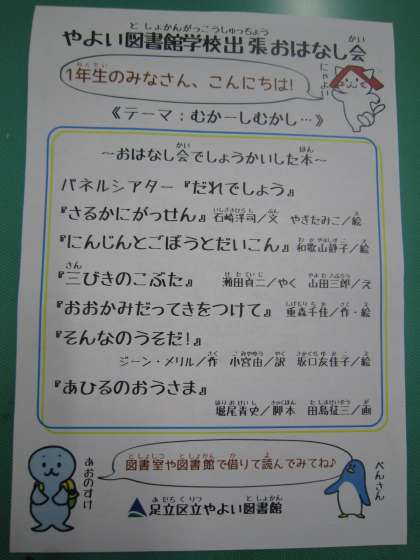 やよい図書館学校出張おはなし会
にゃよい
1年生のみなさん、こんにちは!
《テーマ:むかーしむかし…》
～おはなし会でしょうかいした本～
パネルシアター『だれでしょう』
『さるかにがっせん』 石崎洋司/文 やぎたみこ/絵
『にんじんとごぼうとだいこん』 和歌山静子/絵
『三びきのこぶた』 瀬田貞二/やく 山田三郎/え
『おおかみだってきをつけて』 重森千佳/作・絵
『そんなのうそだ!』
ジーン・メリル/作 小宮由/訳 坂口友佳子/絵
『あひるのおうさま』
堀尾青史/脚本 田島征三/画
あおのすけ
図書室や図書館で借りて読んでみてね♪
ぺんさん
足立区立やよい図書館